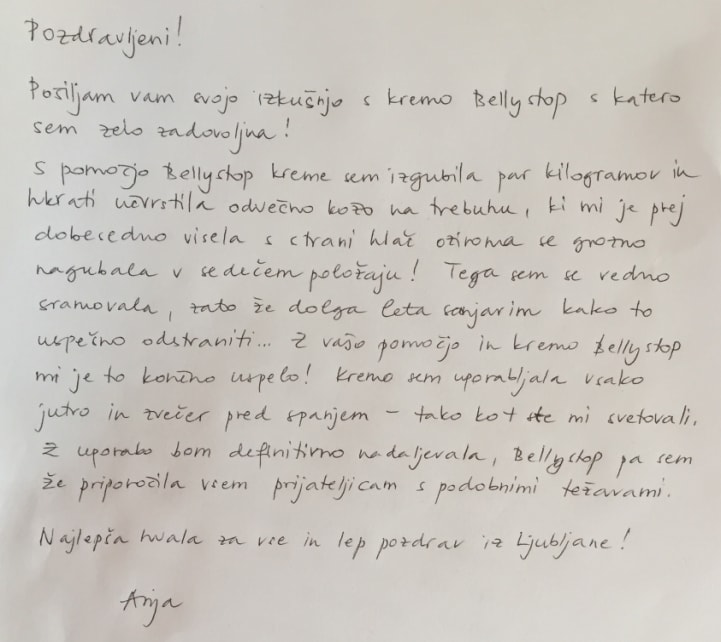 Pozdravljeni!
Pošiljam vam svojo izkušnjo s kremo Bellystop s katero
sem zelo zadovoljna!
S pomočjo Bellystop kreme sem izgubila par kilogramov in
hkrati učvrstila odvečno kožo na trebuhu, ki mi je prej
dobesedno visela s strani hlač oziroma se grozno
nagubala v sedečem položaju! Tega sem se vedno
sramovala, zato že dolga leta sanjarim kako to
uspešno odstraniti... Z vašo pomočjo in kremo Bellystop
mi je to končno uspelo! Kremo sem uporabljala vsako
jutro in zvečer pred spanjem – tako kot ste mi svetovali.
Z uporabo bom definitivno nadaljevala, Bellystop pa sem
že priporočila vsem prijateljicam s podobnimi težavami.
Najlepša hvala za vse in lep pozdrav iz Ljubljane!
Anja